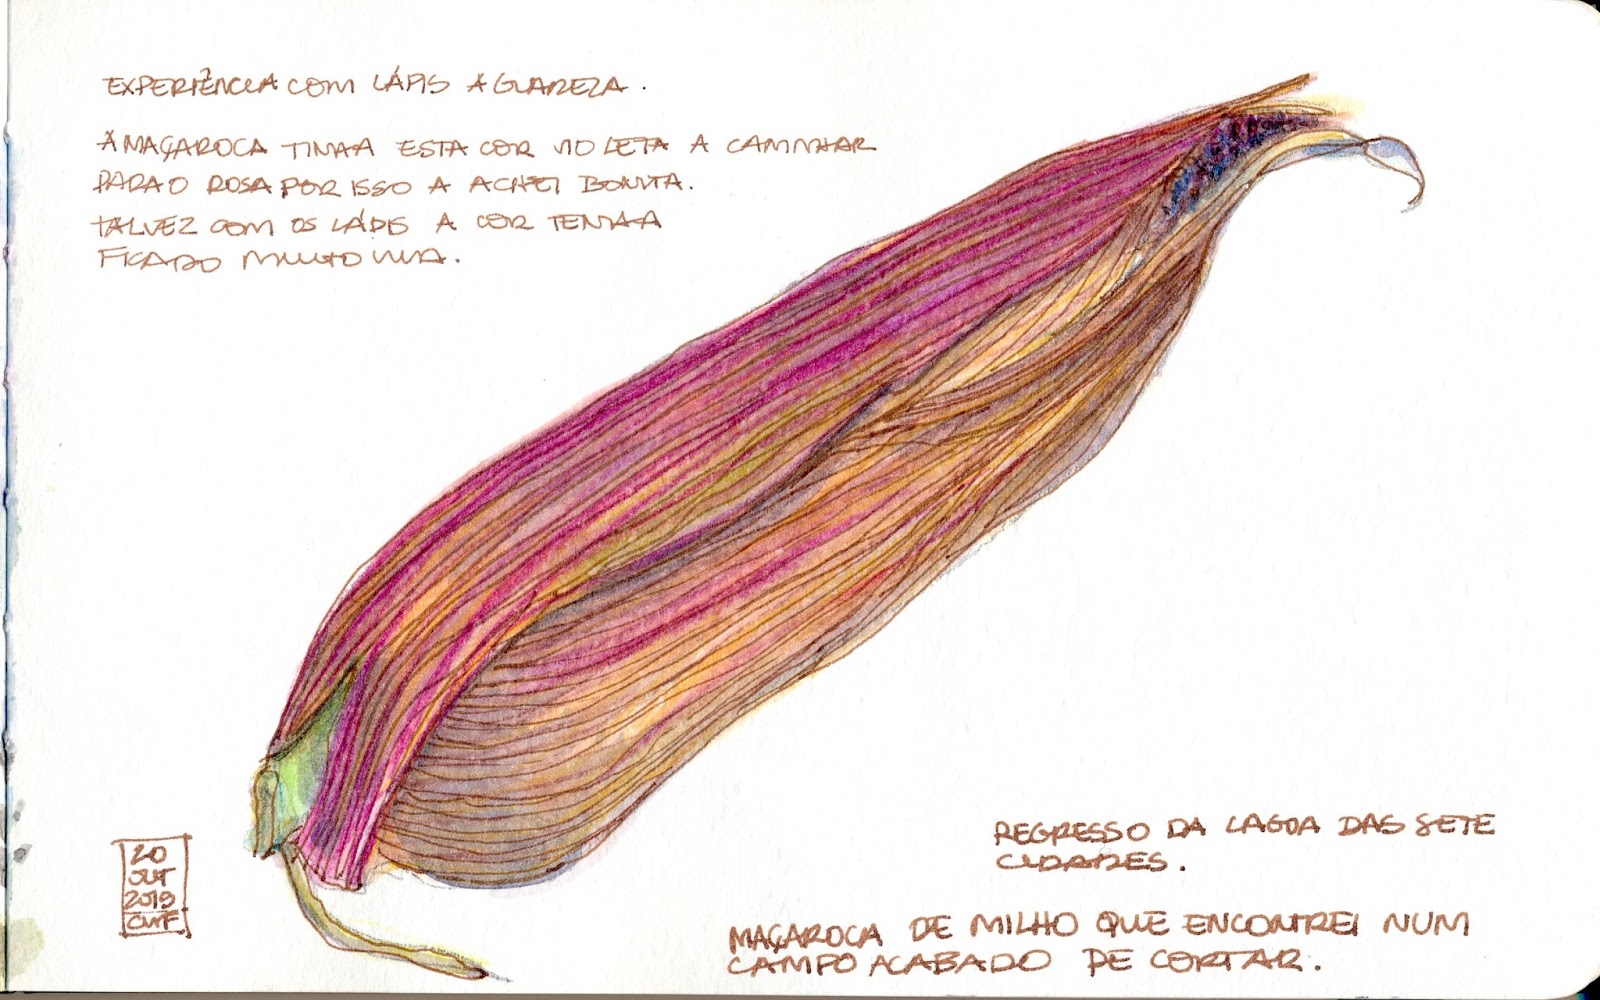 EXPERIÊNCIA COM LÁPIS AGUARELA.
A MAÇAROCA TINHA ESTA COR VIOLETA A CAMINHAR
PARA O ROSA POR ISSO A ACHEI BONITA.
TALVEZ COM OS LÁPIS A COR TENHA
FICADO MUITO VIVA.
REGRESSO DA LAGOA DAS SETE
CIDADES.
MAÇAROCA DE MILHO QUE ENCONTREI NUM
CAMPO ACABADO DE CORTAR.
20
OUT
2019